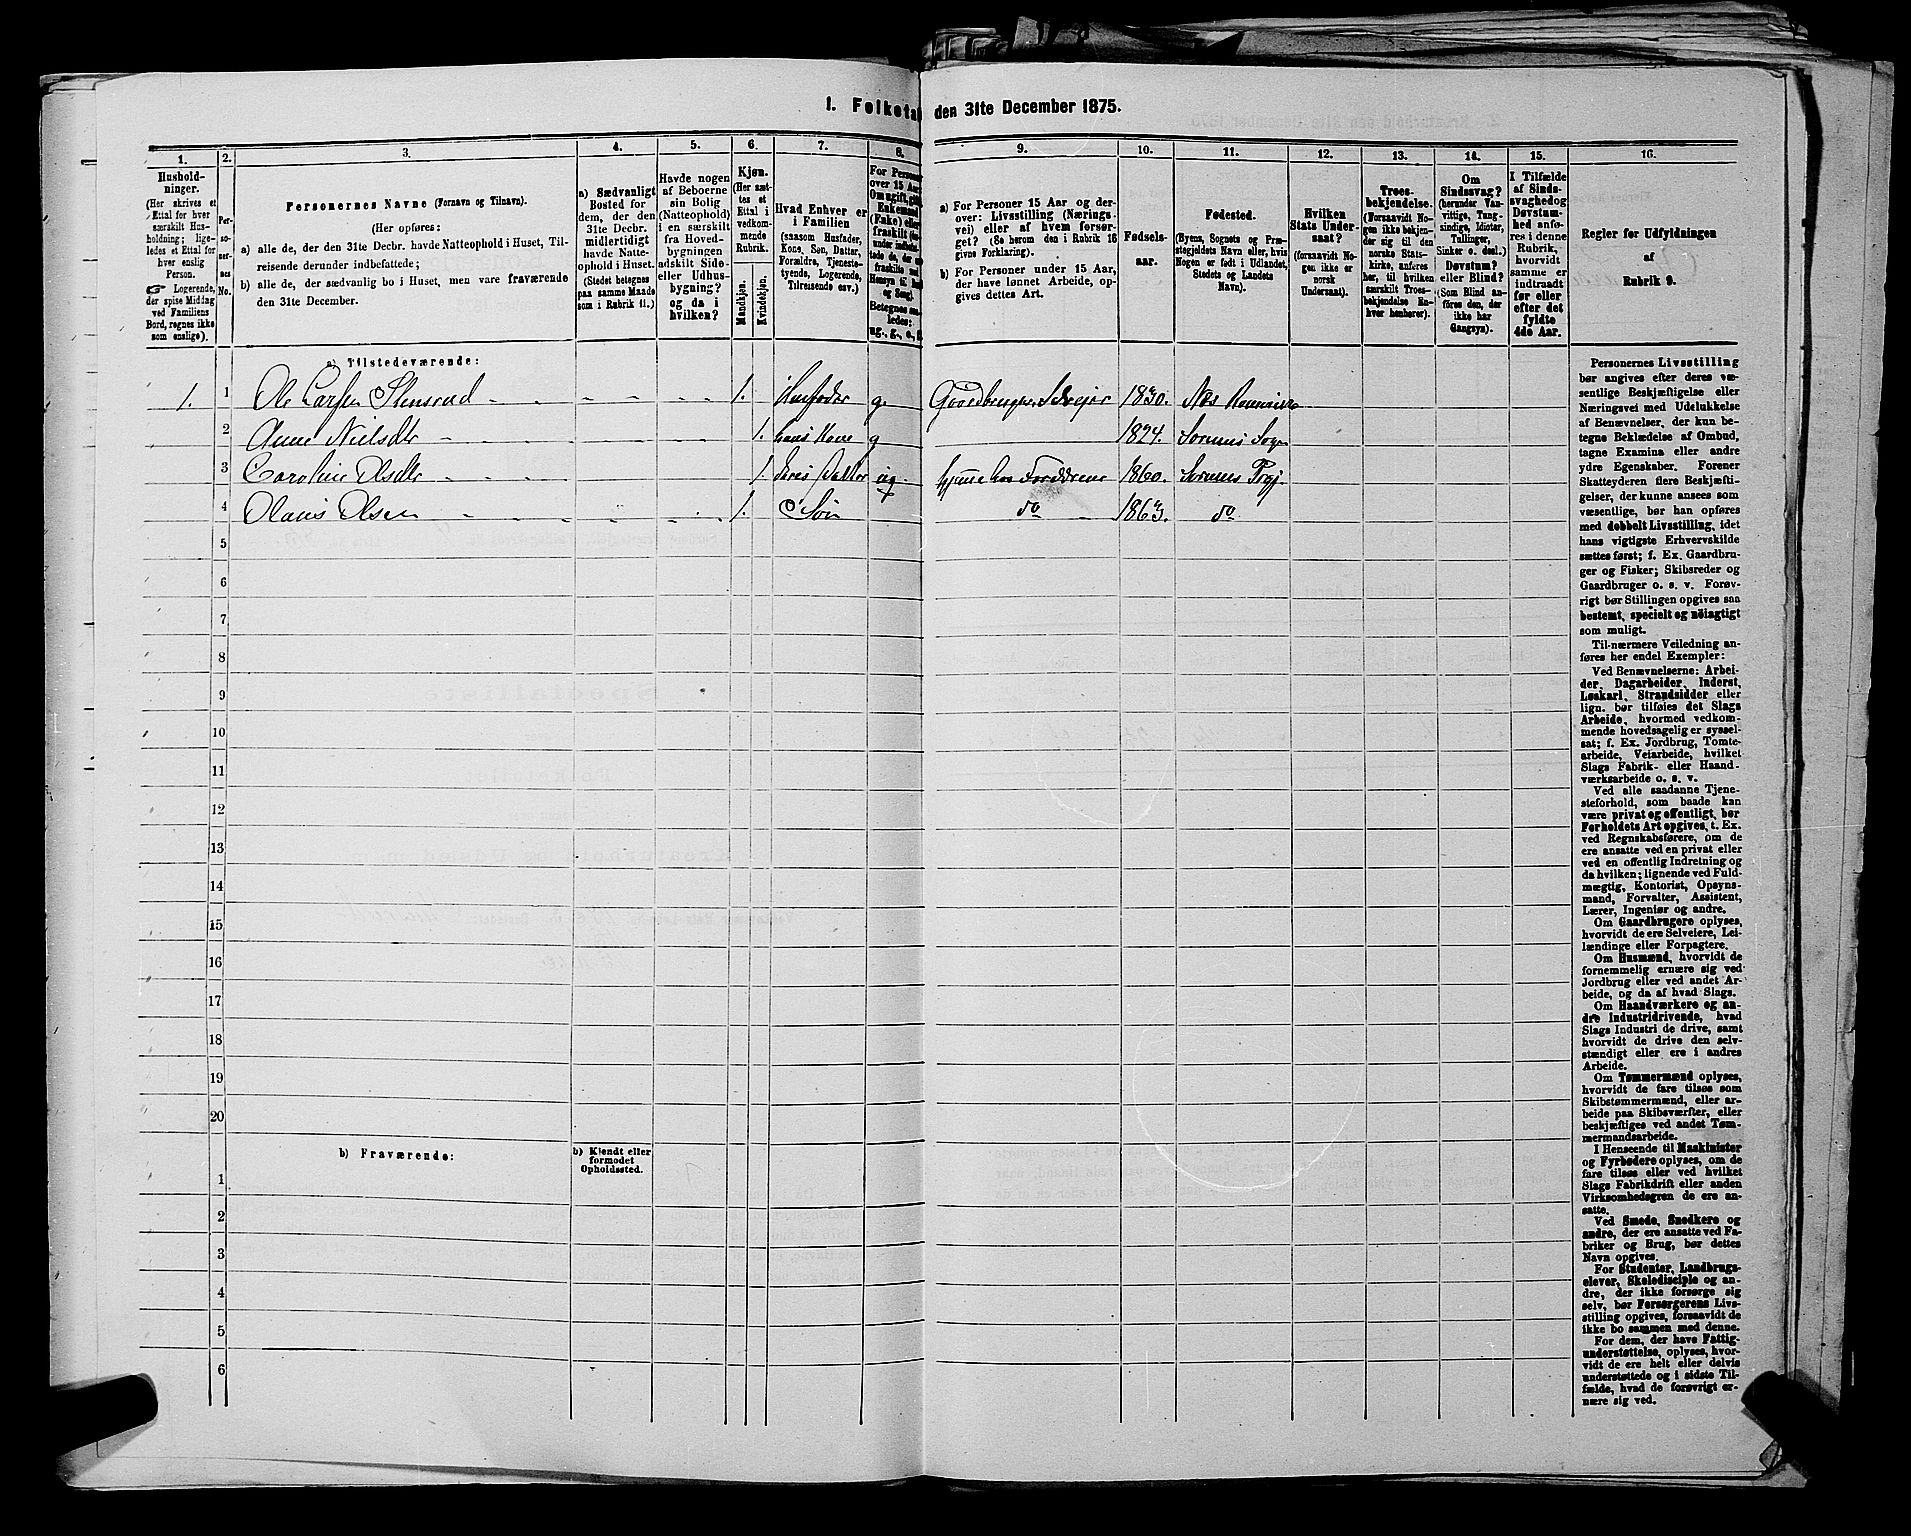 1. Folketal den 31te December 1875.
1.
2.
3.
4.
5.
6.
7.
8.
9.
10.
11.
12.
13.
14.
15.
16.
Hushold-
ninger.
(Her skrives et
Ettal for hver
særskilt Hus-
holdning; lige-
ledes et Ettal for
hver enslig
Person.
☞ Logerende,
der spise Middag
ved Familiens
Bord, regnes ikke
som enslige).
Per-
so-
ner-
nes
No.
Personernes Navne (Fornavn og Tilnavn).
(Her opføres:
a) alle de, der den 31te Decbr. havde Natteophold i Huset, Til-
reisende derunder indbefattede;
b) alle de, der sædvanlig bo i Huset, men vare fraværende
den 31te December.
a) Sædvanligt
Bosted for
dem, der den
31te Decbr.
midlertidigt
havde Natte-
ophold i Huset.
(Stedet betegnes
paa samme Maade
som i Rubrik 11.)
Havde nogen
af Beboerne
sin Bolig
(Natteophold)
i en særskilt
fra Hoved-
bygningen
adskilt Side-
eller Udhus-
bygning?
og da i
hvilken?
Kjøn.
(Her sæt-
tes et
Ettal i
vedkom-
mende
Rubrik.
Mandkjøn.
Kvindekjøn.
Hvad Enhver er
i Familien
(saasom Husfader,
Kone, Søn, Datter,
Forældre, Tjeneste-
tyende, Logerende,
Tilreisende osv.)
For Personer
over 15 Aar
a) For Personer 15 Aar og der-
over: Livsstilling (Nærings-
vei) eller af hvem forsør-
get? (Se herom den i Rubrik 16
givne Forklaring).
b) For Personer under 15 Aar,
der have lønnet Arbeide, op-
gives dettes Art.
Fødsels-
aar.
Fødested.
(Byens, Sognets og Præ-
stegjeldets Navn eller, hvis
Nogen er født i Udlandet,
Stedets og Landets
Navn).
Hvilken
Stats Under-
saat?
(forsaavidt No-
gen ikke er
norsk
Undersaat).
Troes-
bekjendelse.
(Forsaavidt No-
gen ikke bekjen-
der sig til den
norske Stats-
kirke, anføres
her, til hvilken
særskilt Troes-
bekjendelse En-
hver henhører).
Om
Sindssvag?
(herunder Van-
vittige, Tung-
sindige, Idioter,
Tullinger,
Sinker o. desl.).
Døvstum?
eller Blind?
(Som Blind an-
føres den, der
ikke har
Gangsyn).
I Tilfælde
af Sinds-
svaghed og
Døvstum-
hed anfø-
res i denne
Rubrik,
hvorvidt
samme er
indtraadt
før eller
efter det
fyldte
4de Aar.
Regler for Udfyldningen
af
Rubrik 9.
a) Tilstedeværende:
1. 1 Ole Larsen Stensrud 1. Husfader g. Gaardbruger Selveier 1830. Næs Romerike
2 Anne Nielsdtr 1. hans Kone g 1824. Sørums Sogn
3 Caroline Olsdtr 1. deres Datter ug. hjeme hos Forældrene 1860. Sørums Prgj.
4 Olaus Olsen 1. Søn do 1863. do
5
6
7
8
9
10
11
12
13
14
15
16
17
18
19
20
b) Fraværende:
b) Kjendt eller
formodet
Opholdssted.
1
2
3
4
5
6
Personernes Livsstilling
bør angives efter deres væ-
sentlige Beskjæftigelse eller
Næringsvei med Udelukkelse
af Benævnelser, der kun be-
tegne Beklædelse af Ombud,
tagne Examina eller andre
ydre Egenskaber. Forener
Skatteyderen flere Beskjæfti-
gelser, der kunne ansees som
væsentlige, bør han opføres
med dobbelt Livsstilling, idet
hans vigtigste Erhvervskilde
sættes først; f. Ex. Gaardbru-
ger og Fisker; Skibsreder og
Gaardbruger o. s. v. Forøv-
rigt bør Stillingen opgives saa
bestemt, specielt og nöiagtigt
som muligt.
Til nærmere Veiledning an-
føres her endel Exempler:
Ved Benævnelserne: Arbei-
der, Dagarbeider, Inderst,
Løskarl, Strandsidder eller
lign. bør tilføies det Slags
Arbeide, hvormed vedkom-
mende hovedsagelig er syssel-
sat; f. Ex. Jordbrug, Tomte-
arbeide, Veiarbeide, hvilket
Slags Fabrik- eller Haand-
værksarbeide o. s. v.
Ved alle saadanne Tjene-
steforhold, som baade kan
være privat og offentligt, bør
Forholdets Art opgives, t. Ex.
ved Regnskabsførere, om de
ere ansatte ved en privat eller
ved en offentlig Indretning og
da hvilken; lignende ved Fuld-
mægtig, Kontorist, Opsyns-
mand, Forvalter, Assistent,
Lærer, Ingeniør og andre.
Om Gaardbrugere oplyses,
hvorvidt de ere Selveiere, Lei-
lændinge eller Forpagtere.
Om Husmænd, hvorvidt de
fornemmelig ernære sig ved
Jordbrug eller ved andet Ar-
beide, og da af hvad Slags.
Om Haandværkere og an-
dre Industridrivende, hvad
Slags Industri de drive, samt
hvorvidt de drive den selv-
stændigt eller ere i andres
Arbeide.
Om Tømmermænd oplyses,
hvorvidt de fare tilsøs som
Skibstømmermænd, eller ar-
beide paa Skibsværfter, eller
beskjæftiges ved andet Tøm-
mermandsarbeide.
I Henseende til Maskinister
og Fyrbødere oplyses, om de
fare tilsøs eller ved hvilket
Slags Fabrikdrift eller anden
Virksomhedsgren de ere an-
satte.
Ved Smede, Snedkere og
andre, der ere ansatte ved Fa-
briker og Brug, bør dettes
Navn opgives.
For Studenter, Landbrugs-
elever, Skoledisciple og an-
dre, der ikke forsørge sig
selv, bør Forsørgerens Livs-
stilling opgives, forsaavidt de
ikke bo sammen med denne.
For dem, der have Fattig-
understøttelse, oplyses, hvor-
vidt de ere helt eller delvis
understøttede og i sidste Til-
fælde, hvad de forøvrigt er-
nære sig ved.